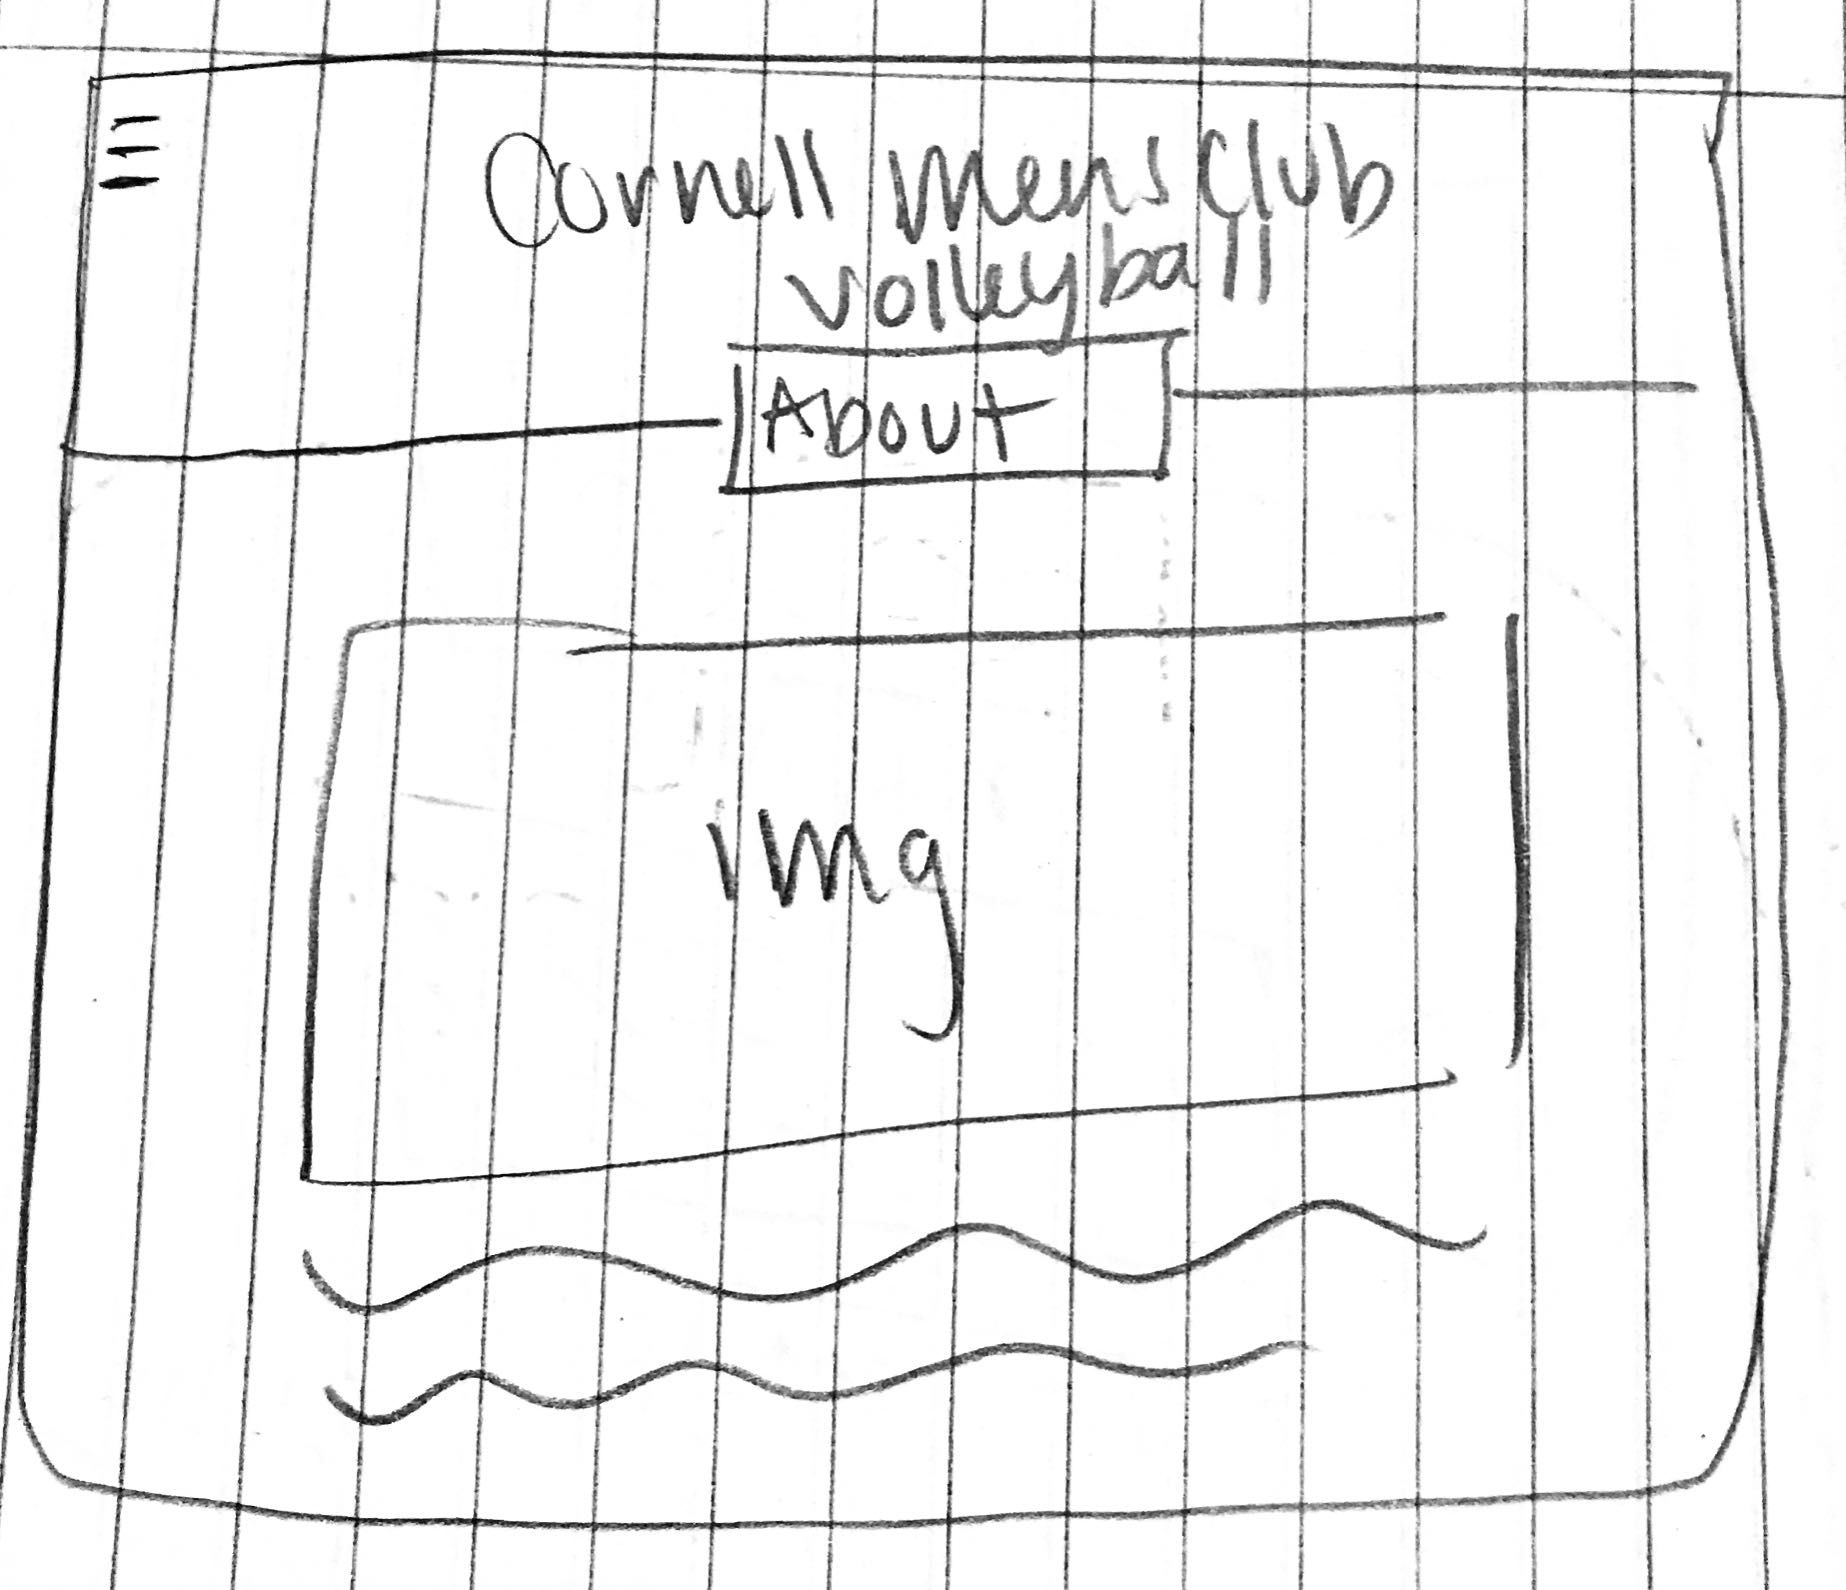 Cornell mens Club
volleyball
About
img